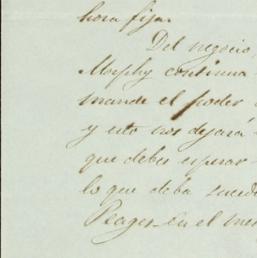 hora fija.
Del negocio
Morphy continua
mande el poder
y esto nos dejará
que debes esperar
lo que deba sucede
Pleages. En el mes